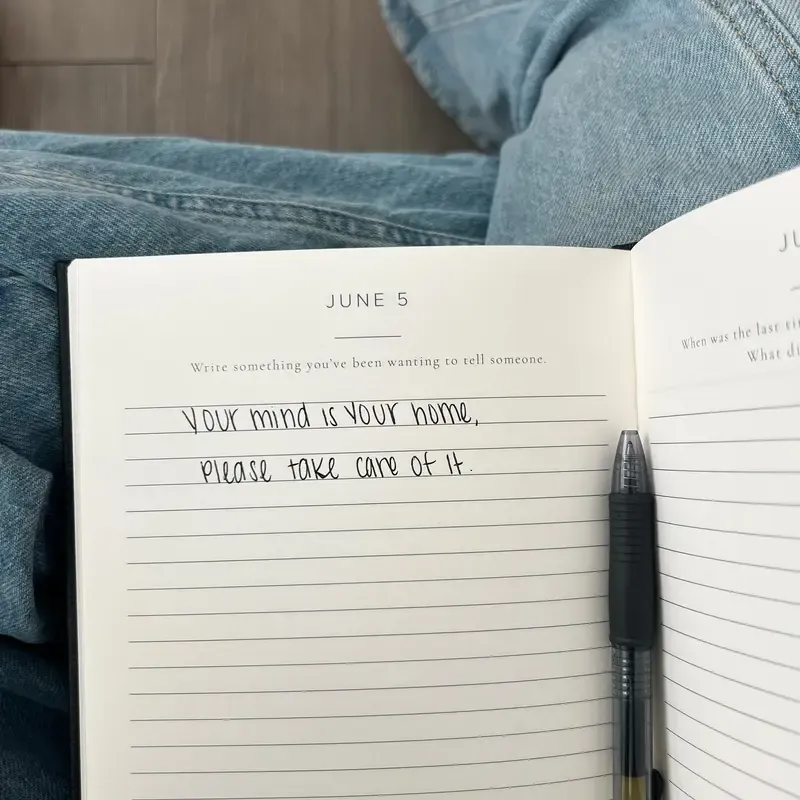 JUNE 5
Write something you've been wanting to tell someone.
Your mind is your home,
please take care of it.
JU
When was the last
What di